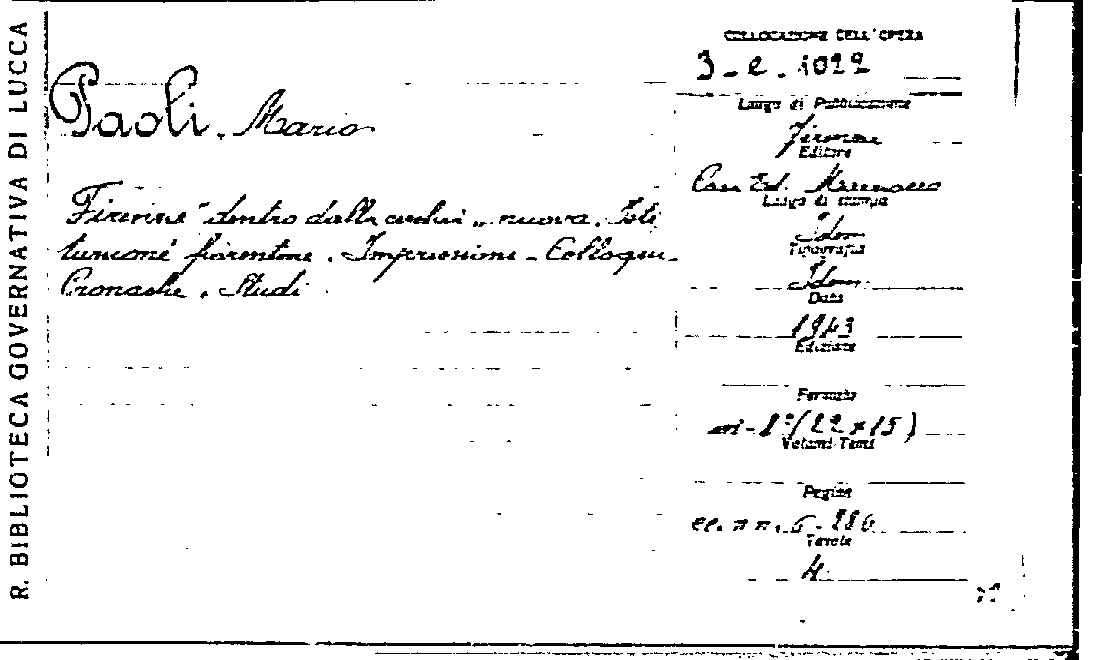 R. BIBLIOTECA GOVERNATIVA DI LUCCA
Paoli. Mario
Firenze "dentro dalla cerchia" nuova. Isti
tuzioni fiorentine. Impressioni - Colloqui -
Cronache. Studi
COLLOCAZIONE DELL'OPERA
3 - e. 1022
Luogo di Pubblicazione
Firenze
Editore
Casa Ed. Marzocco
Luogo di stampa
Idem
Tipografia
Idem
Data
1943
Edizione
Formato
in-8° (22 x 15)
Volumi-Tomi
Pagine
cc. nn. 6 - 286
Tavole
4